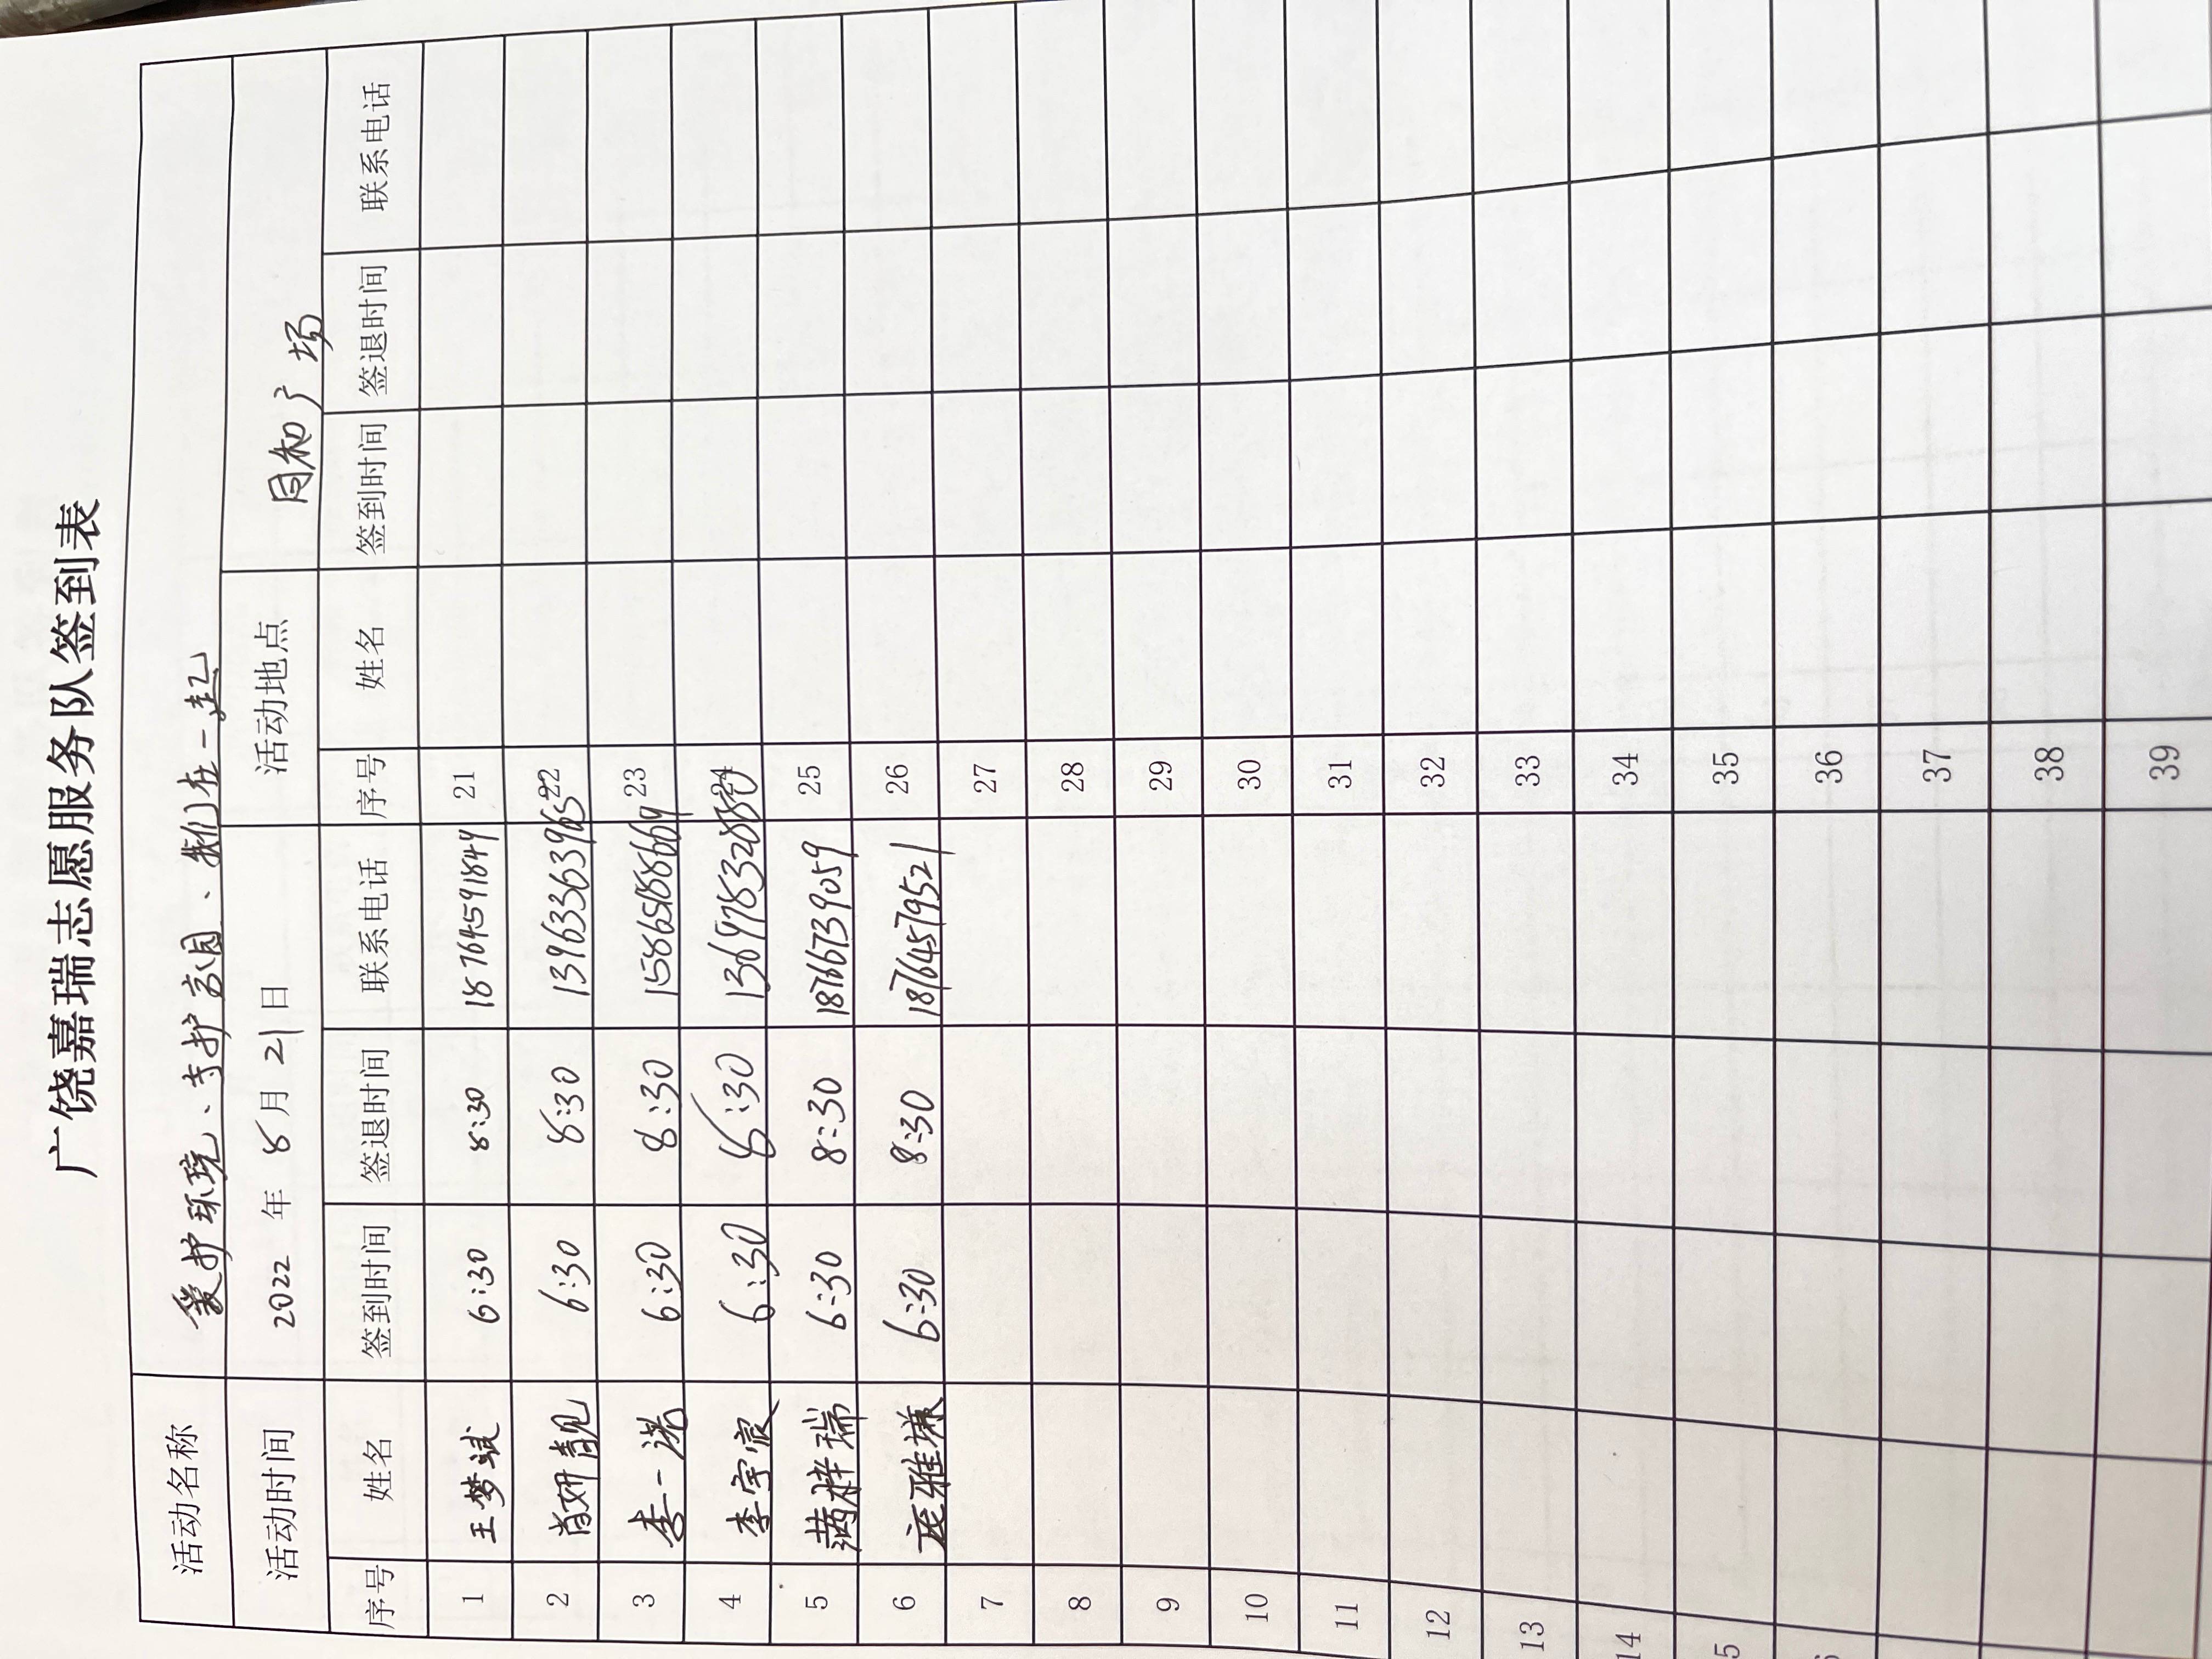 广饶嘉瑞志愿服务队签到表
活动名称 爱护环境、守护家园、我们在一起
活动时间 2022 年 8 月 21 日 活动地点 同和广场
序号 姓名 签到时间 签退时间 联系电话 序号 姓名 签到时间 签退时间 联系电话
1 王梦斌 6:30 8:30 18764591849 21
2 6:30 8:30 13963363965 22
3 李一诺 6:30 8:30 15865888669 23
4 李宇宸 6:30 8:30 24
5 满梓瑞 6:30 8:30 18766739059 25
6 庞雅馨 6:30 8:30 18764579521 26
7 27
8 28
9 29
10 30
11 31
12 32
13 33
14 34
5 35
36
37
38
39